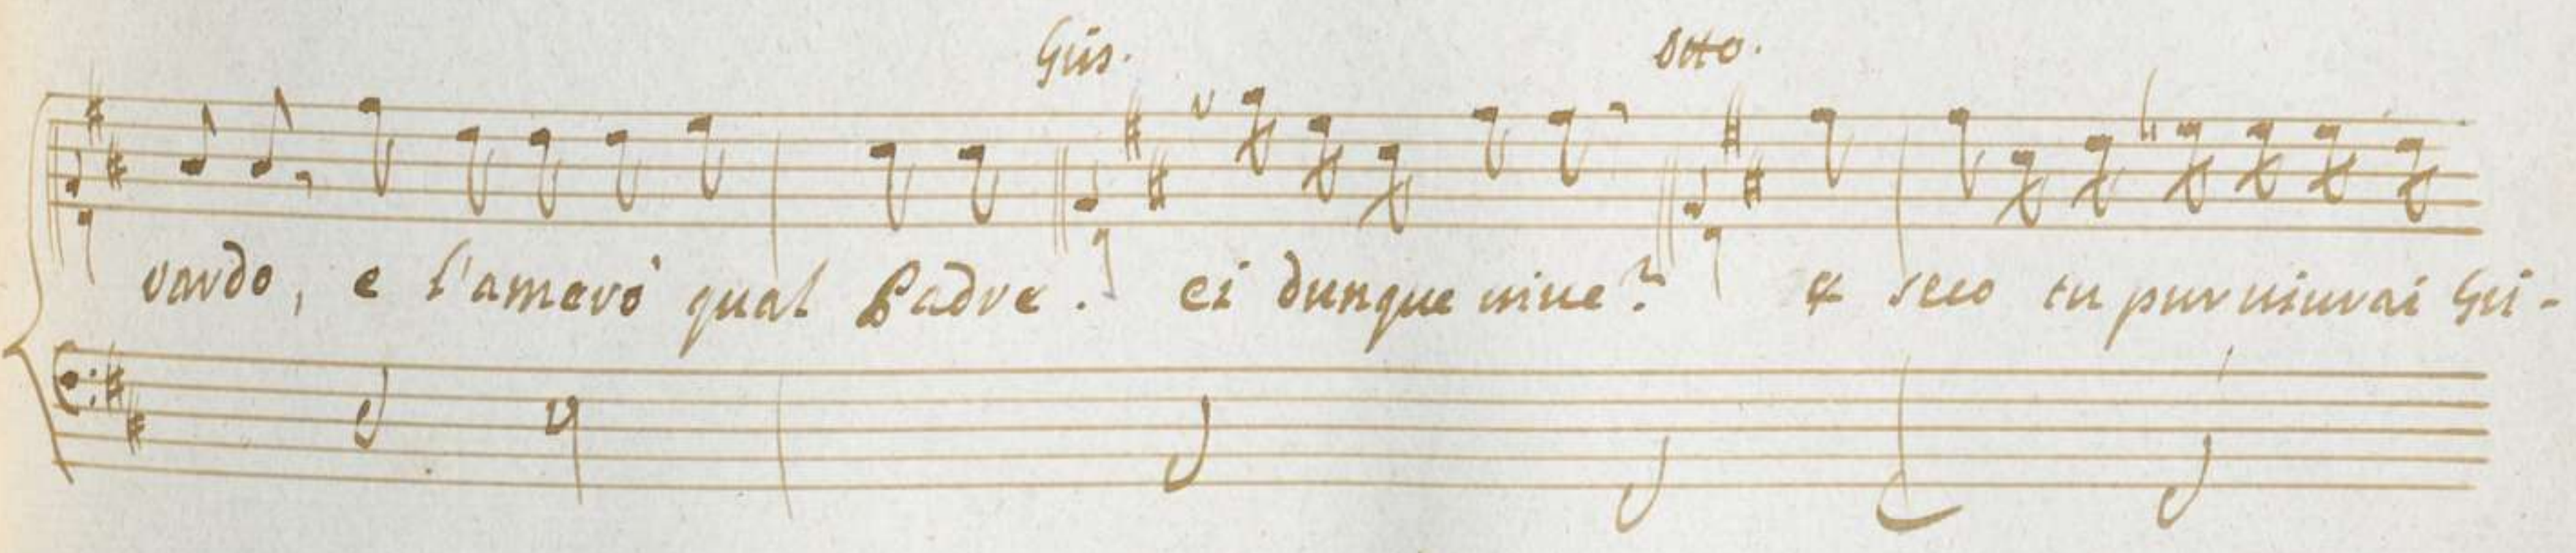 Gis. Otto.
vardo, e l'amerò qual Padre. ei dunque uiue? & seco tu pur uiurai Gi-